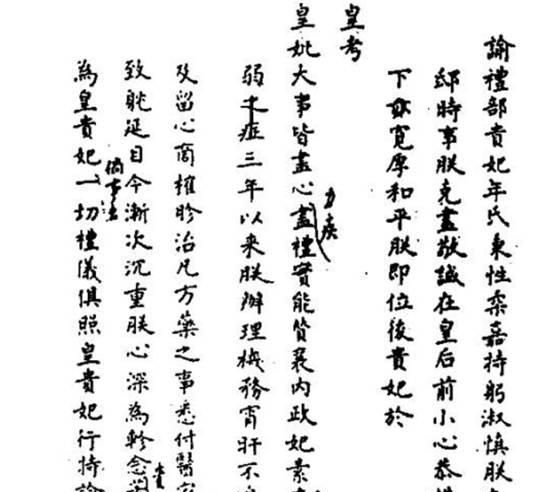 諭禮部貴妃年氏秉性柔嘉持躬淑慎朕
邸時事朕克盡敬誠在皇后前小心恭
下亦寬厚和平朕即位後貴妃於
皇考
皇妣大事皆盡心力疾盡禮實能贊襄內政妃素
弱之症三年以來朕辦理機務宵旰不
及留心商榷胗治凡方藥之事悉付醫
致躭延目今漸次沉重朕心深為軫念
為皇貴妃倘事出一切禮儀俱照皇貴妃行特諭